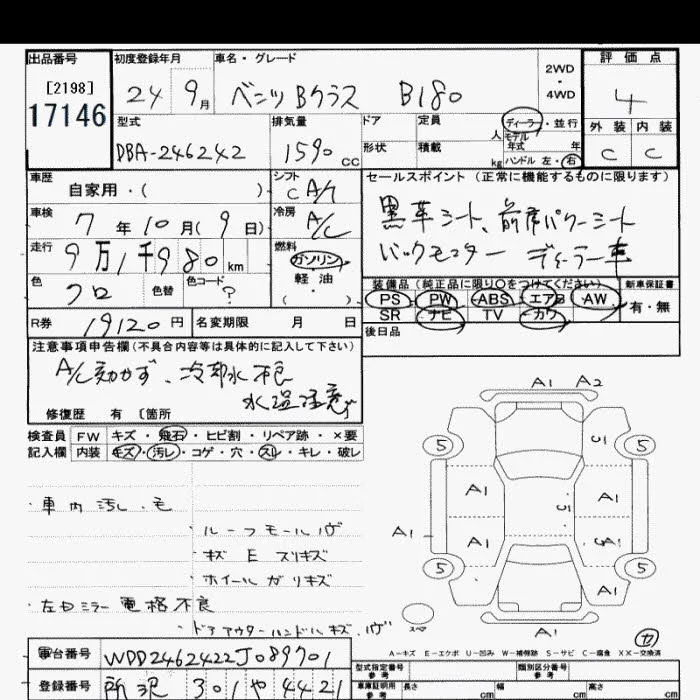 出品番号 初度登録年月 車名・グレード 2WD・4WD 評価点
[2198]
17146
24 9月 ベンツBクラス B180 4
型式 排気量 ドア 定員 人 ディーラー・並行 外装 内装
モデル年式 年
DBA-246242 1590cc 形状 積載 kg ハンドル 左・右 C C
車歴 自家用・( ) シフト C A/T セールスポイント (正常に機能するものに限ります)
車検 7年10月(9日) 冷房 A/C 黒革シート、前席パワーシート
走行 9万1千980km 燃料 ガソリン・軽油・( ) バックモニター ディーラー車
色 クロ 色替 色コード ? 装備品(純正品に限り○をつけてください) 新車保証書
PS PW ABS エアB AW 有・無
R券 19120円 名変期限 月 日 SR ナビ TV カワ
後日品
注意事項申告欄(不具合内容等は具体的に記入して下さい)
A/C効かず、冷却水不良
水温注意
修復歴 有 〔箇所
A1 A2
検査員記入欄 FW キズ・飛石・ヒビ割・リペア跡・×要
内装 キズ・汚レ・コゲ・穴・スレ・キレ・破レ
5 5
A1 A1
A1
A1
5 5
A1
A1
・車内汚レ・毛
・ルーフモール
・キズ E スリキズ
・ホイールガリキズ
・左右ミラー電格不良
・ドアアウターハンドルキズ.
スペア
A-キズ E-エクボ U-凹み W-補修跡 S-サビ C-腐食 XX-交換済
車台番号 WDD2462422J089701
登録番号 所沢 301 や 4421
型式指定番号 参考 類別区分番号 参考
車庫証明用 参考 長さ cm 幅 cm 高さ cm